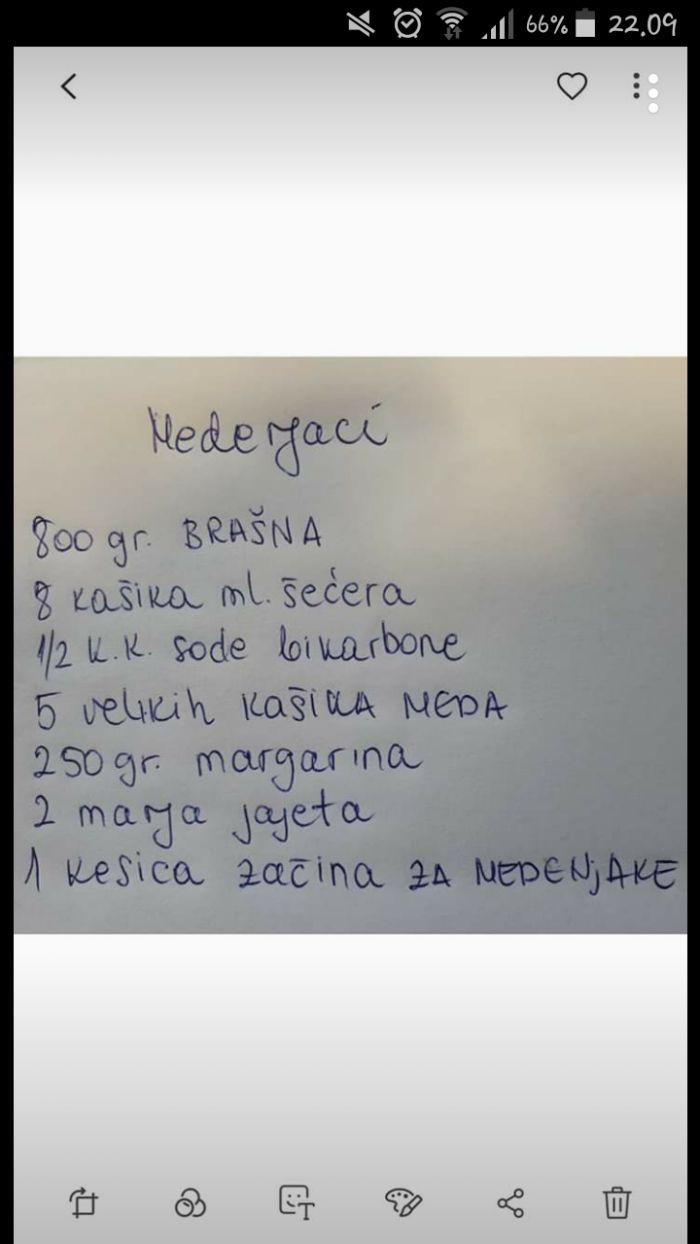 66% 22.09
Medenjaci
800 gr. BRAŠNA
8 kašika ml. šećera
1/2 k.k. sode bikarbone
5 velikih kašika MEDA
250 gr. margarina
2 manja jajeta
1 kesica začina ZA MEDENjAKE
T